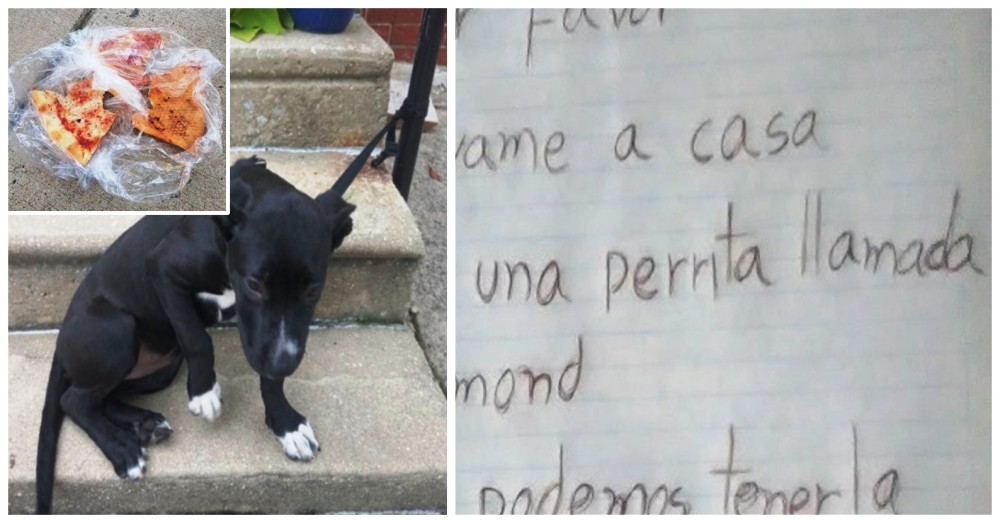 r Favor
vame a casa
una perrita llamada
mond
podemos tenerla